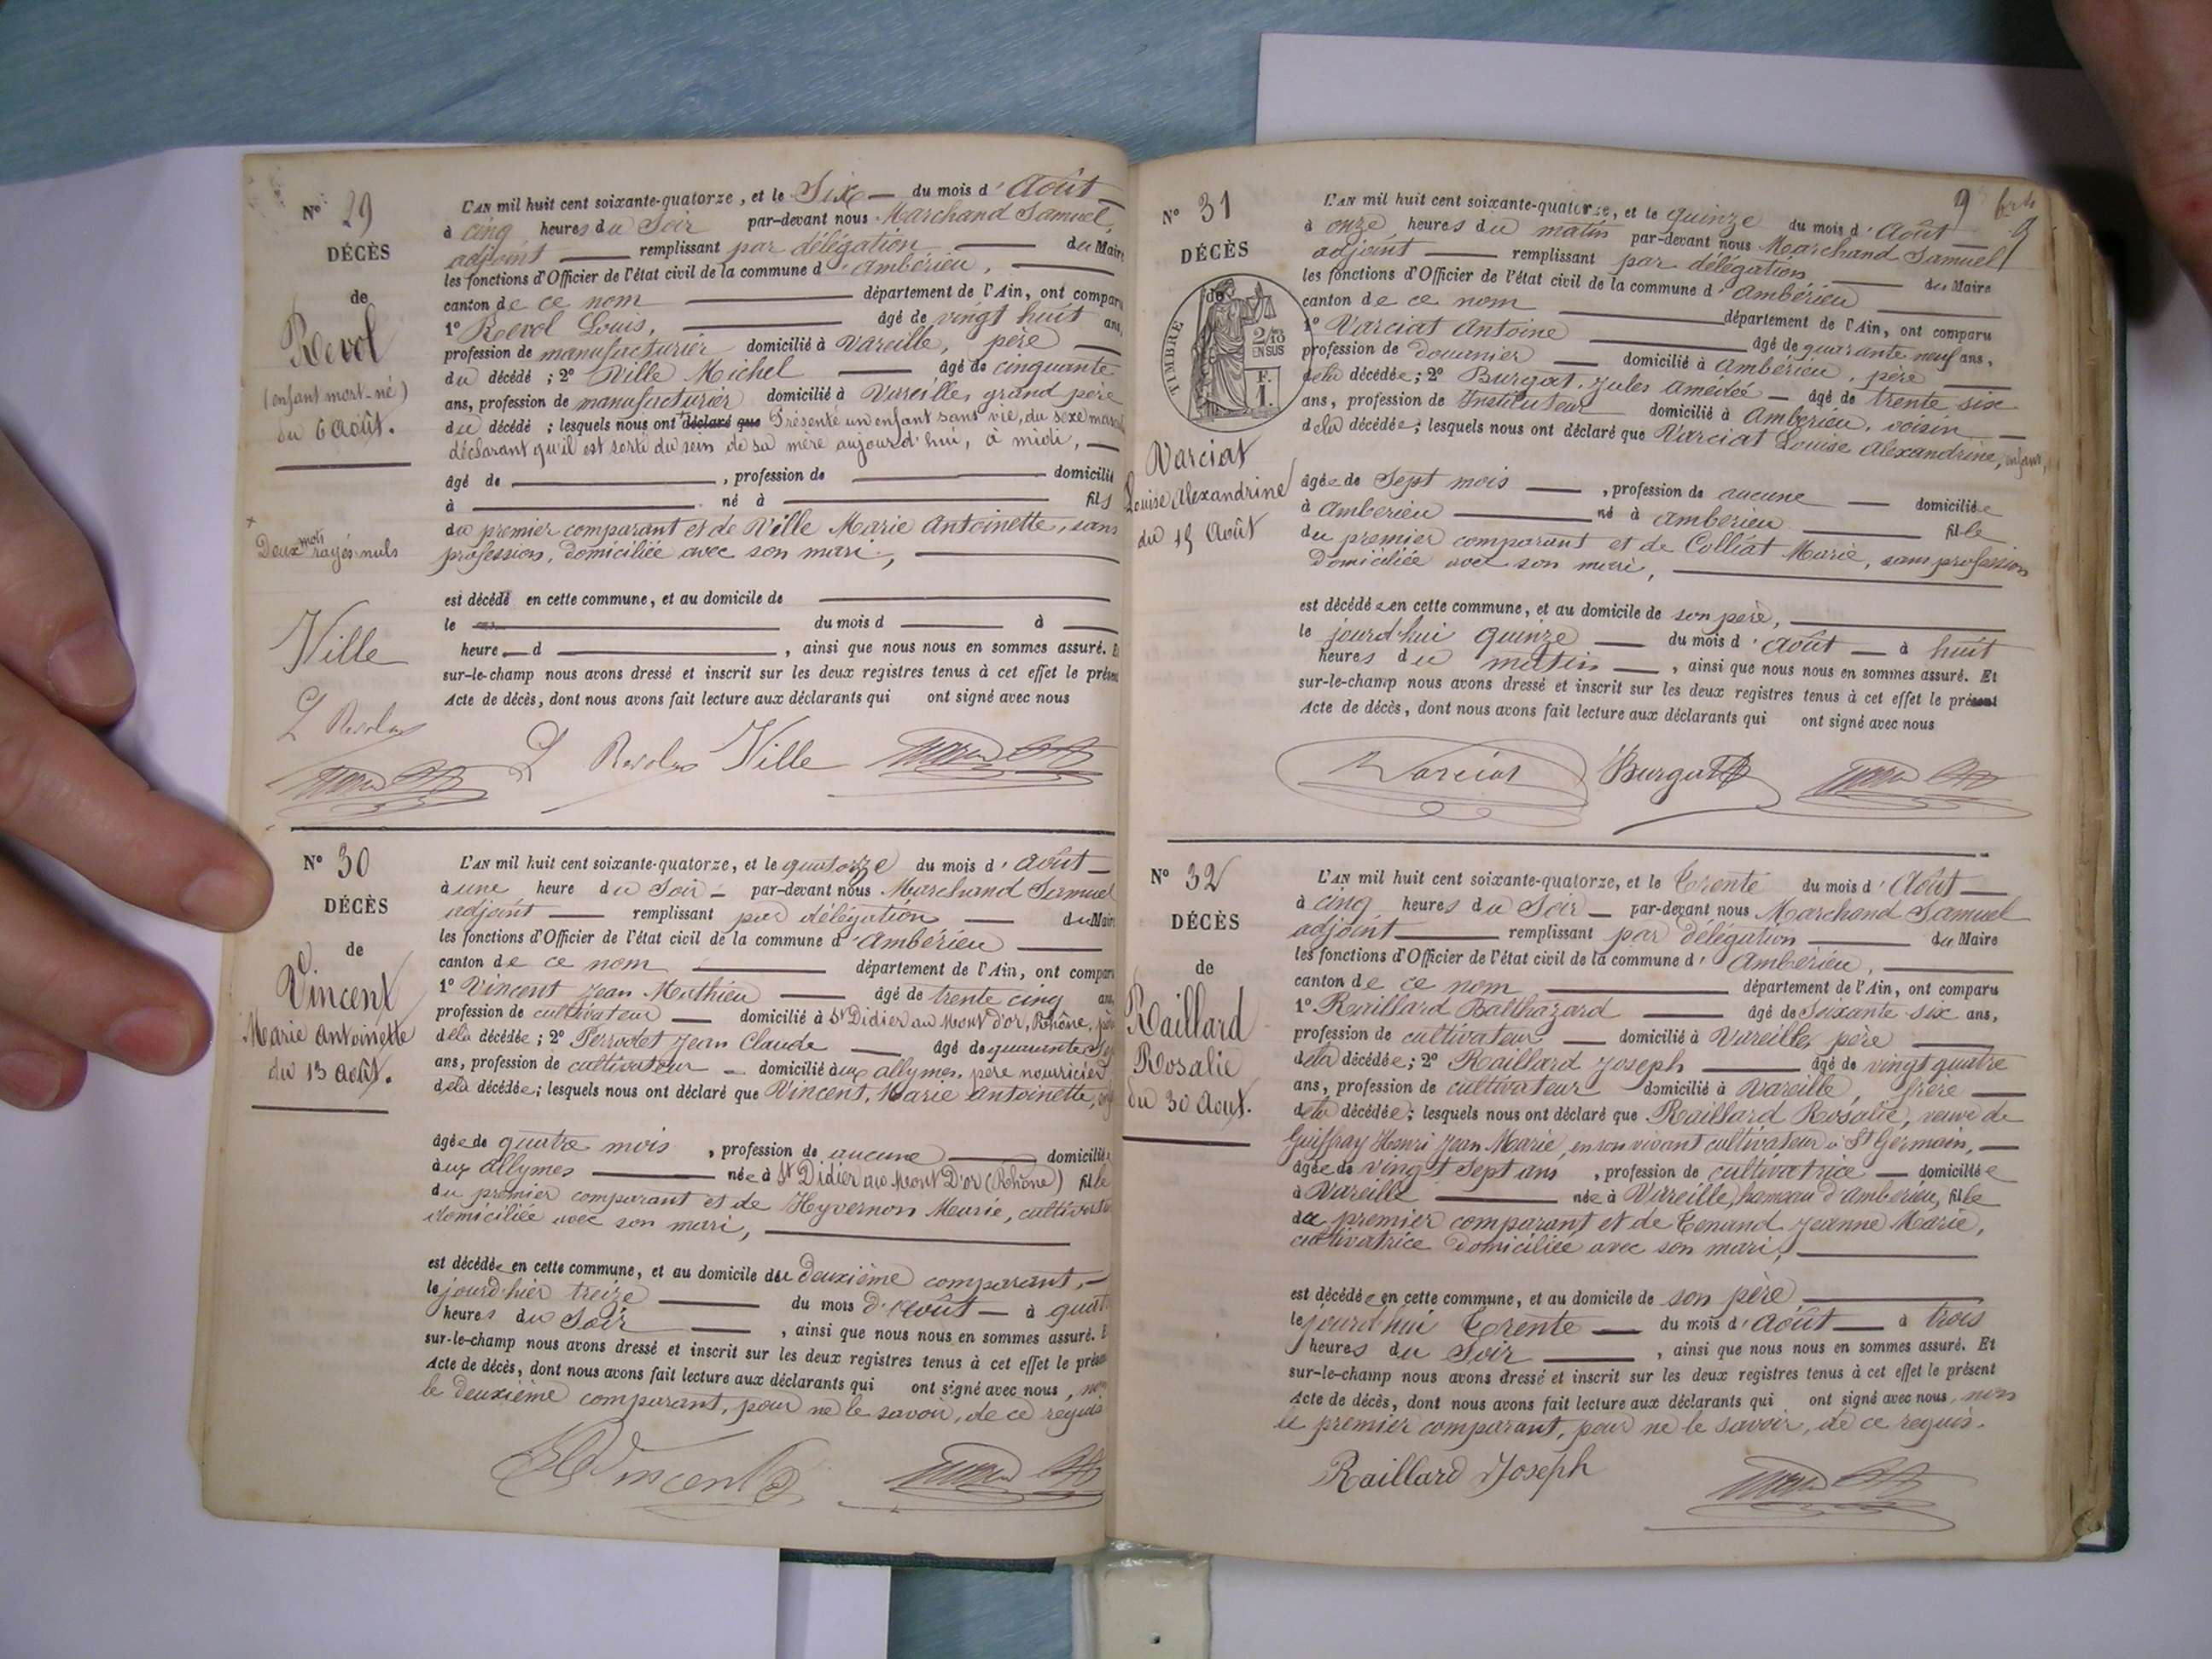 N° 29
DÉCÈS
de
Revol
(enfant mort-né)
du 6 Août.
Deux mots rayés nuls
Ville
L Revol
L'AN mil huit cent soixante-quatorze, et le Six — du mois d' Août —
à cinq heures du Soir par-devant nous Marchand Samuel,
adjoint — remplissant par délégation — du Maire
les fonctions d'Officier de l'état civil de la commune d' Ambérieu, —
canton de ce nom — département de l'Ain, ont comparu
1° Revol Louis, — âgé de vingt huit ans,
profession de manufacturier domicilié à Vareille, père —
du décédé ; 2° Ville Michel — âgé de cinquante
ans, profession de manufacturier domicilié à Vareilles, grand père
du décédé ; lesquels nous ont déclaré que Présenté un enfant sans vie, du sexe
déclarant qu'il est sorti du sein de sa mère aujourd'hui, à midi, —
âgé de —, profession de — domicilié
à — né à — fils
du premier comparant et de Ville Marie Antoinette, sans
profession, domiciliée avec son mari, —
est décédé en cette commune, et au domicile de —
le — du mois d — à —
heure — d —, ainsi que nous nous en sommes assuré.
sur-le-champ nous avons dressé et inscrit sur les deux registres tenus à cet effet le présent
Acte de décès, dont nous avons fait lecture aux déclarants qui ont signé avec nous
L Revol Ville
N° 30
DÉCÈS
de
Vincent
Marie Antoinette
du 13 Août.
L'AN mil huit cent soixante-quatorze, et le quatorze du mois d' Août —
à une heure du Soir — par-devant nous Marchand Samuel
adjoint — remplissant par délégation — du Maire
les fonctions d'Officier de l'état civil de la commune d' Ambérieu —
canton de ce nom — département de l'Ain, ont comparu
1° Vincent Jean Mathieu — âgé de trente cinq ans,
profession de cultivateur — domicilié à St Didier au Mont d'or, Rhône, père
de la décédée ; 2° Perrodet Jean Claude — âgé de quarante
ans, profession de cultivateur — domicilié aux allymes, père nourricier
de la décédée ; lesquels nous ont déclaré que Vincent, Marie Antoinette,
âgée de quatre mois, profession de aucune — domiciliée
aux allymes — née à St Didier au Mont D'or (Rhône) fille
du premier comparant et de Hyvernon Marie,
domiciliée avec son mari, —
est décédée en cette commune, et au domicile du deuxième comparant, —
le jourd'hier treize — du mois d'Août — à
heures du Soir —, ainsi que nous nous en sommes assuré.
sur-le-champ nous avons dressé et inscrit sur les deux registres tenus à cet effet le présent
Acte de décès, dont nous avons fait lecture aux déclarants qui ont signé avec nous, non
le deuxième comparant, pour ne le savoir, de ce requis
Vincent
9
N° 31
DÉCÈS
de
TIMBRE
2/10
EN SUS
F.
1.
Varciat
Louise Alexandrine
du 15 Août
L'AN mil huit cent soixante-quatorze, et le quinze du mois d' Août —
à onze heures du matin par-devant nous Marchand Samuel
adjoint — remplissant par délégation — du Maire
les fonctions d'Officier de l'état civil de la commune d' Ambérieu
canton de ce nom — département de l'Ain, ont comparu
1° Varciat Antoine — âgé de quarante neuf ans,
profession de douanier — domicilié à Ambérieu, père —
de la décédée ; 2° Burgat, Jules Amédée — âgé de trente six
ans, profession de Instituteur domicilié à Ambérieu, voisin —
de la décédée ; lesquels nous ont déclaré que Varciat Louise Alexandrine, enfant,
âgée de Sept mois —, profession de aucune — domiciliée
à Ambérieu — né à Ambérieu — fille
du premier comparant et de Colliat Marie, sans profession
Domiciliée avec son mari, —
est décédée en cette commune, et au domicile de son père, —
le jourd'hui quinze — du mois d' Août — à huit
heures du matin —, ainsi que nous nous en sommes assuré. Et
sur-le-champ nous avons dressé et inscrit sur les deux registres tenus à cet effet le présent
Acte de décès, dont nous avons fait lecture aux déclarants qui ont signé avec nous
Varciat Burgat
N° 32
DÉCÈS
de
Raillard
Rosalie
du 30 Août.
L'AN mil huit cent soixante-quatorze, et le Trente du mois d' Août —
à cinq heures du Soir — par-devant nous Marchand Samuel
adjoint — remplissant par délégation — du Maire
les fonctions d'Officier de l'état civil de la commune d' Ambérieu, —
canton de ce nom — département de l'Ain, ont comparu
1° Raillard Balthazard — âgé de Soixante six ans,
profession de cultivateur — domicilié à Vareille, père —
de la décédée ; 2° Raillard Joseph — âgé de vingt quatre
ans, profession de cultivateur domicilié à Vareille, frère —
de la décédée ; lesquels nous ont déclaré que Raillard Rosalie, veuve de
Guiffray Henri Jean Marie, en son vivant cultivateur à St Germain, —
âgée de vingt Sept ans, profession de cultivatrice — domiciliée
à Vareille — née à Vareille, hameau d'Ambérieu, fille
du premier comparant et de Tenand Jeanne Marie,
cultivatrice domiciliée avec son mari, —
est décédée en cette commune, et au domicile de son père —
le jourd'hui Trente — du mois d' Août — à trois
heures du Soir —, ainsi que nous nous en sommes assuré. Et
sur-le-champ nous avons dressé et inscrit sur les deux registres tenus à cet effet le présent
Acte de décès, dont nous avons fait lecture aux déclarants qui ont signé avec nous, non
le premier comparant, pour ne le savoir, de ce requis.
Raillard Joseph